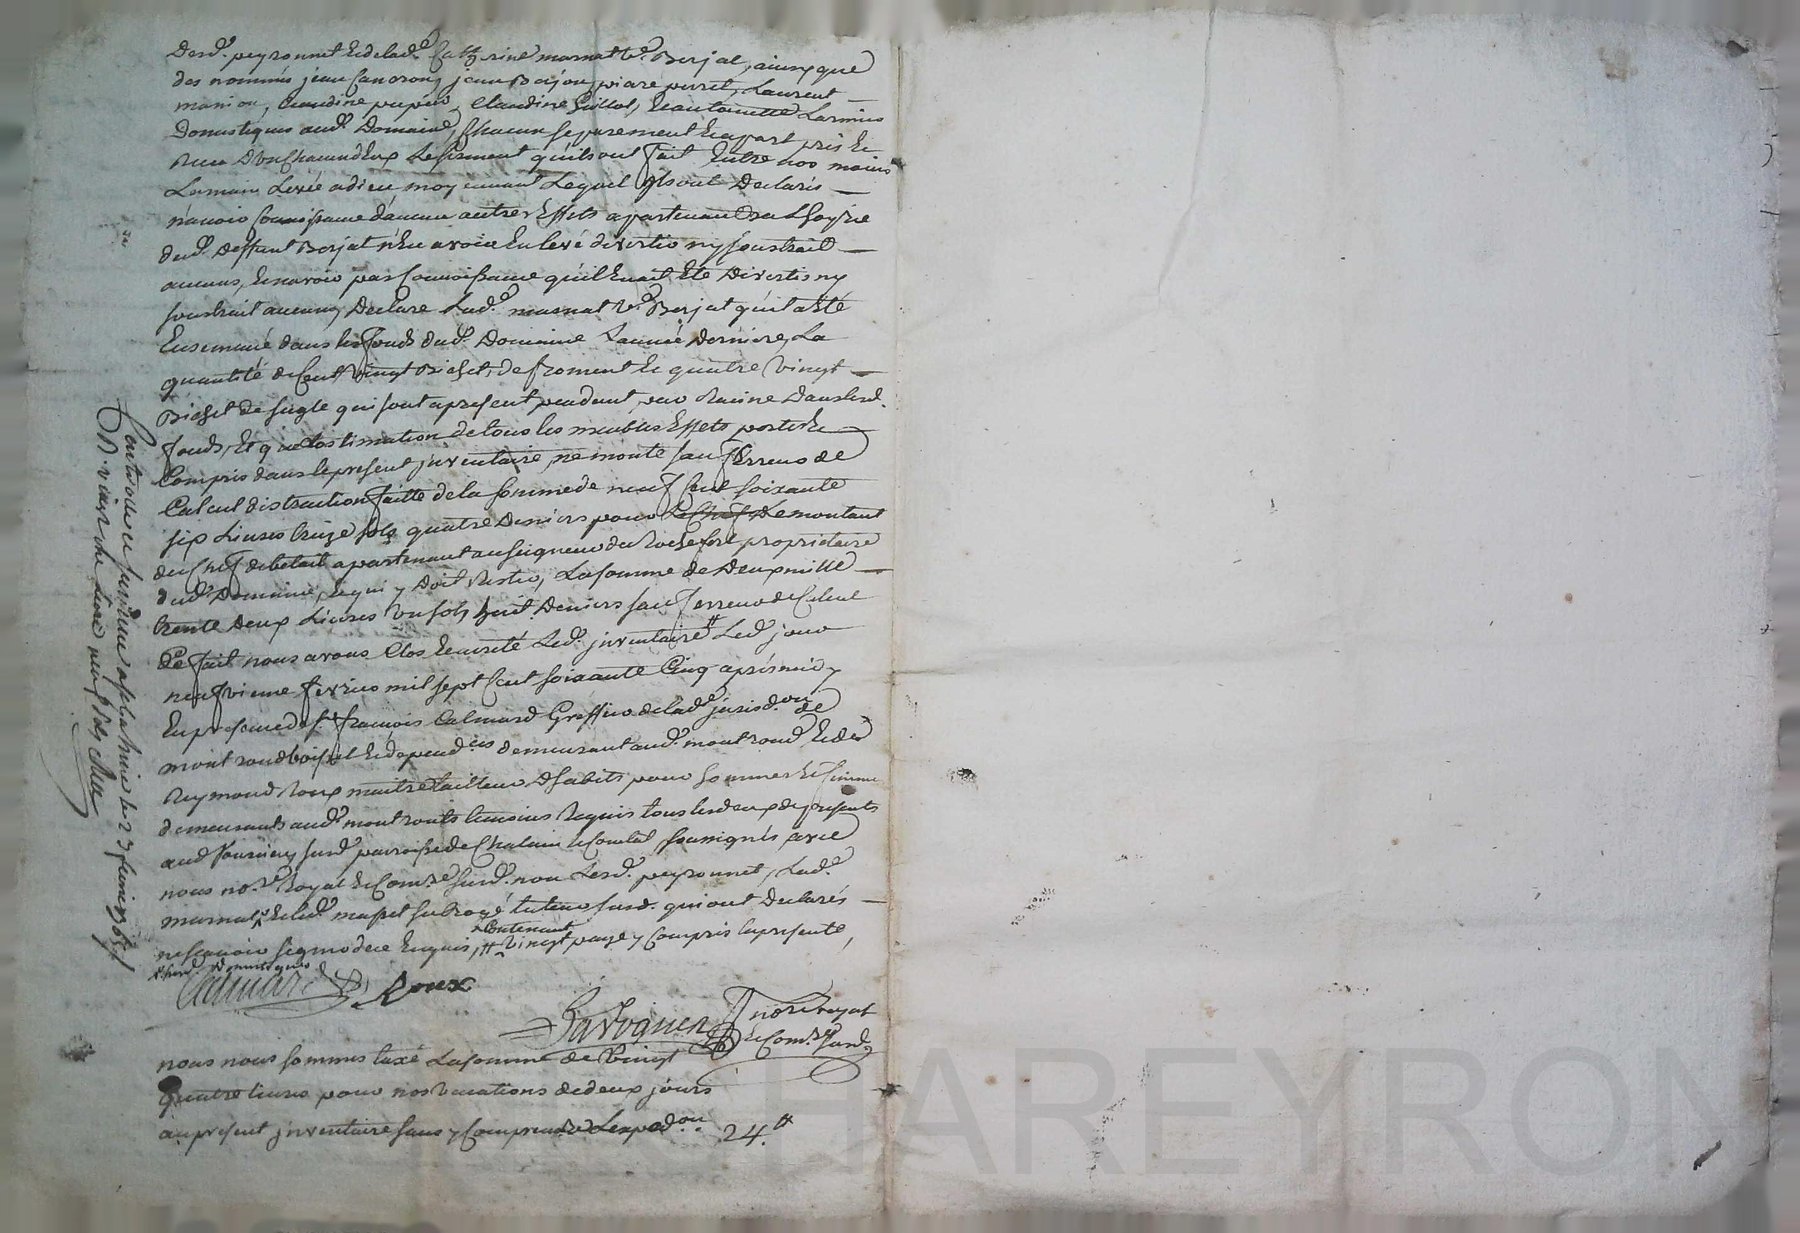 Desd. peyronnet & de lad.e Catherine marnat v.e Berjat, ainsy que
des nommés jean jean Bajou, piare perret, Laurent
Claudine pupier, Claudine Guillot, & antoinette Larmier
Domestiques aud.t Domaine, chacun separement & apart pris &
Reçu D'un chacun d'Eux Le serment qu'ils ont fait Entre nos mains
La main Levée a dieu moyennant Lequel ils ont Declarés
n'avoir connoissance d'aucun autres Effets apartenant a L'hoyrie
dud.t Deffunt Berjat n'En avoir En levé diverti ny soustrait
aucuns, & n'avoir pas connoissance qu'il En ait Eté Divertis ny
soustrait aucuns, Declare Lad.e marnat v.e Berjat qu'il a Eté
Ensemencé dans les fonds dud.t Domaine L'année Derniere, La
quantité de Cent vingt Bichet de froment & quatre vingt
Bichet de seigle qui sont apresent pendant par Racine Dans lesd.
fonds, Et que L'estimation de tous les meubles Effets portés &
Compris dans le present jnventaire, ne monte sauf Erreur de
Calcul distraction faitte de la somme de neuf Cent soixante
six Livres treize sols quatre Deniers pour Le Chef De montant
du chef de betail apartenant au seigneur de Rochefort proprietaire
dud.t Domaine, & qui y Doit Rester, La somme de Deux mille
trente Deux Livres un sols huit Deniers sauf erreur de Calcul
Ce fait nous avons Clos & arreté Led. jnventaire Led. jour
neufvieme fevrier mil sept Cent soixante Cinq après midy
En presence de s.r françois Calmard Greffier de lad.e jurisd.on de
mont rond boisset & depend.ces demeurant aud.t montrond & de
Reymond Roux maitre tailleur D'habits pour hommes & femme
demeurants aud.t montrond temoins Requis tous les deux de presents
aud. susd. parroisse de Chalain le Comtal soussignés avec
nous no.re Royal & Com.re susd. non Lesd. peyronnet, Lad.e
marnat, & led.t masset subrogé tuteur susd. qui ont Declarés
ne scavoir signer de ce Enquis, Contenant vingt page y Compris la presente,
Domestiques
Calmard Roux
Lavoguer no.re royal
& Com.re susd.
nous nous sommes taxé La somme de Vingt
quatre livres pour nos vacations de deux jours
au present jnventaire sans y Comprendre L'exped.on 24 ₶
Controllé a le 23 fevrier 1765
neuf sols